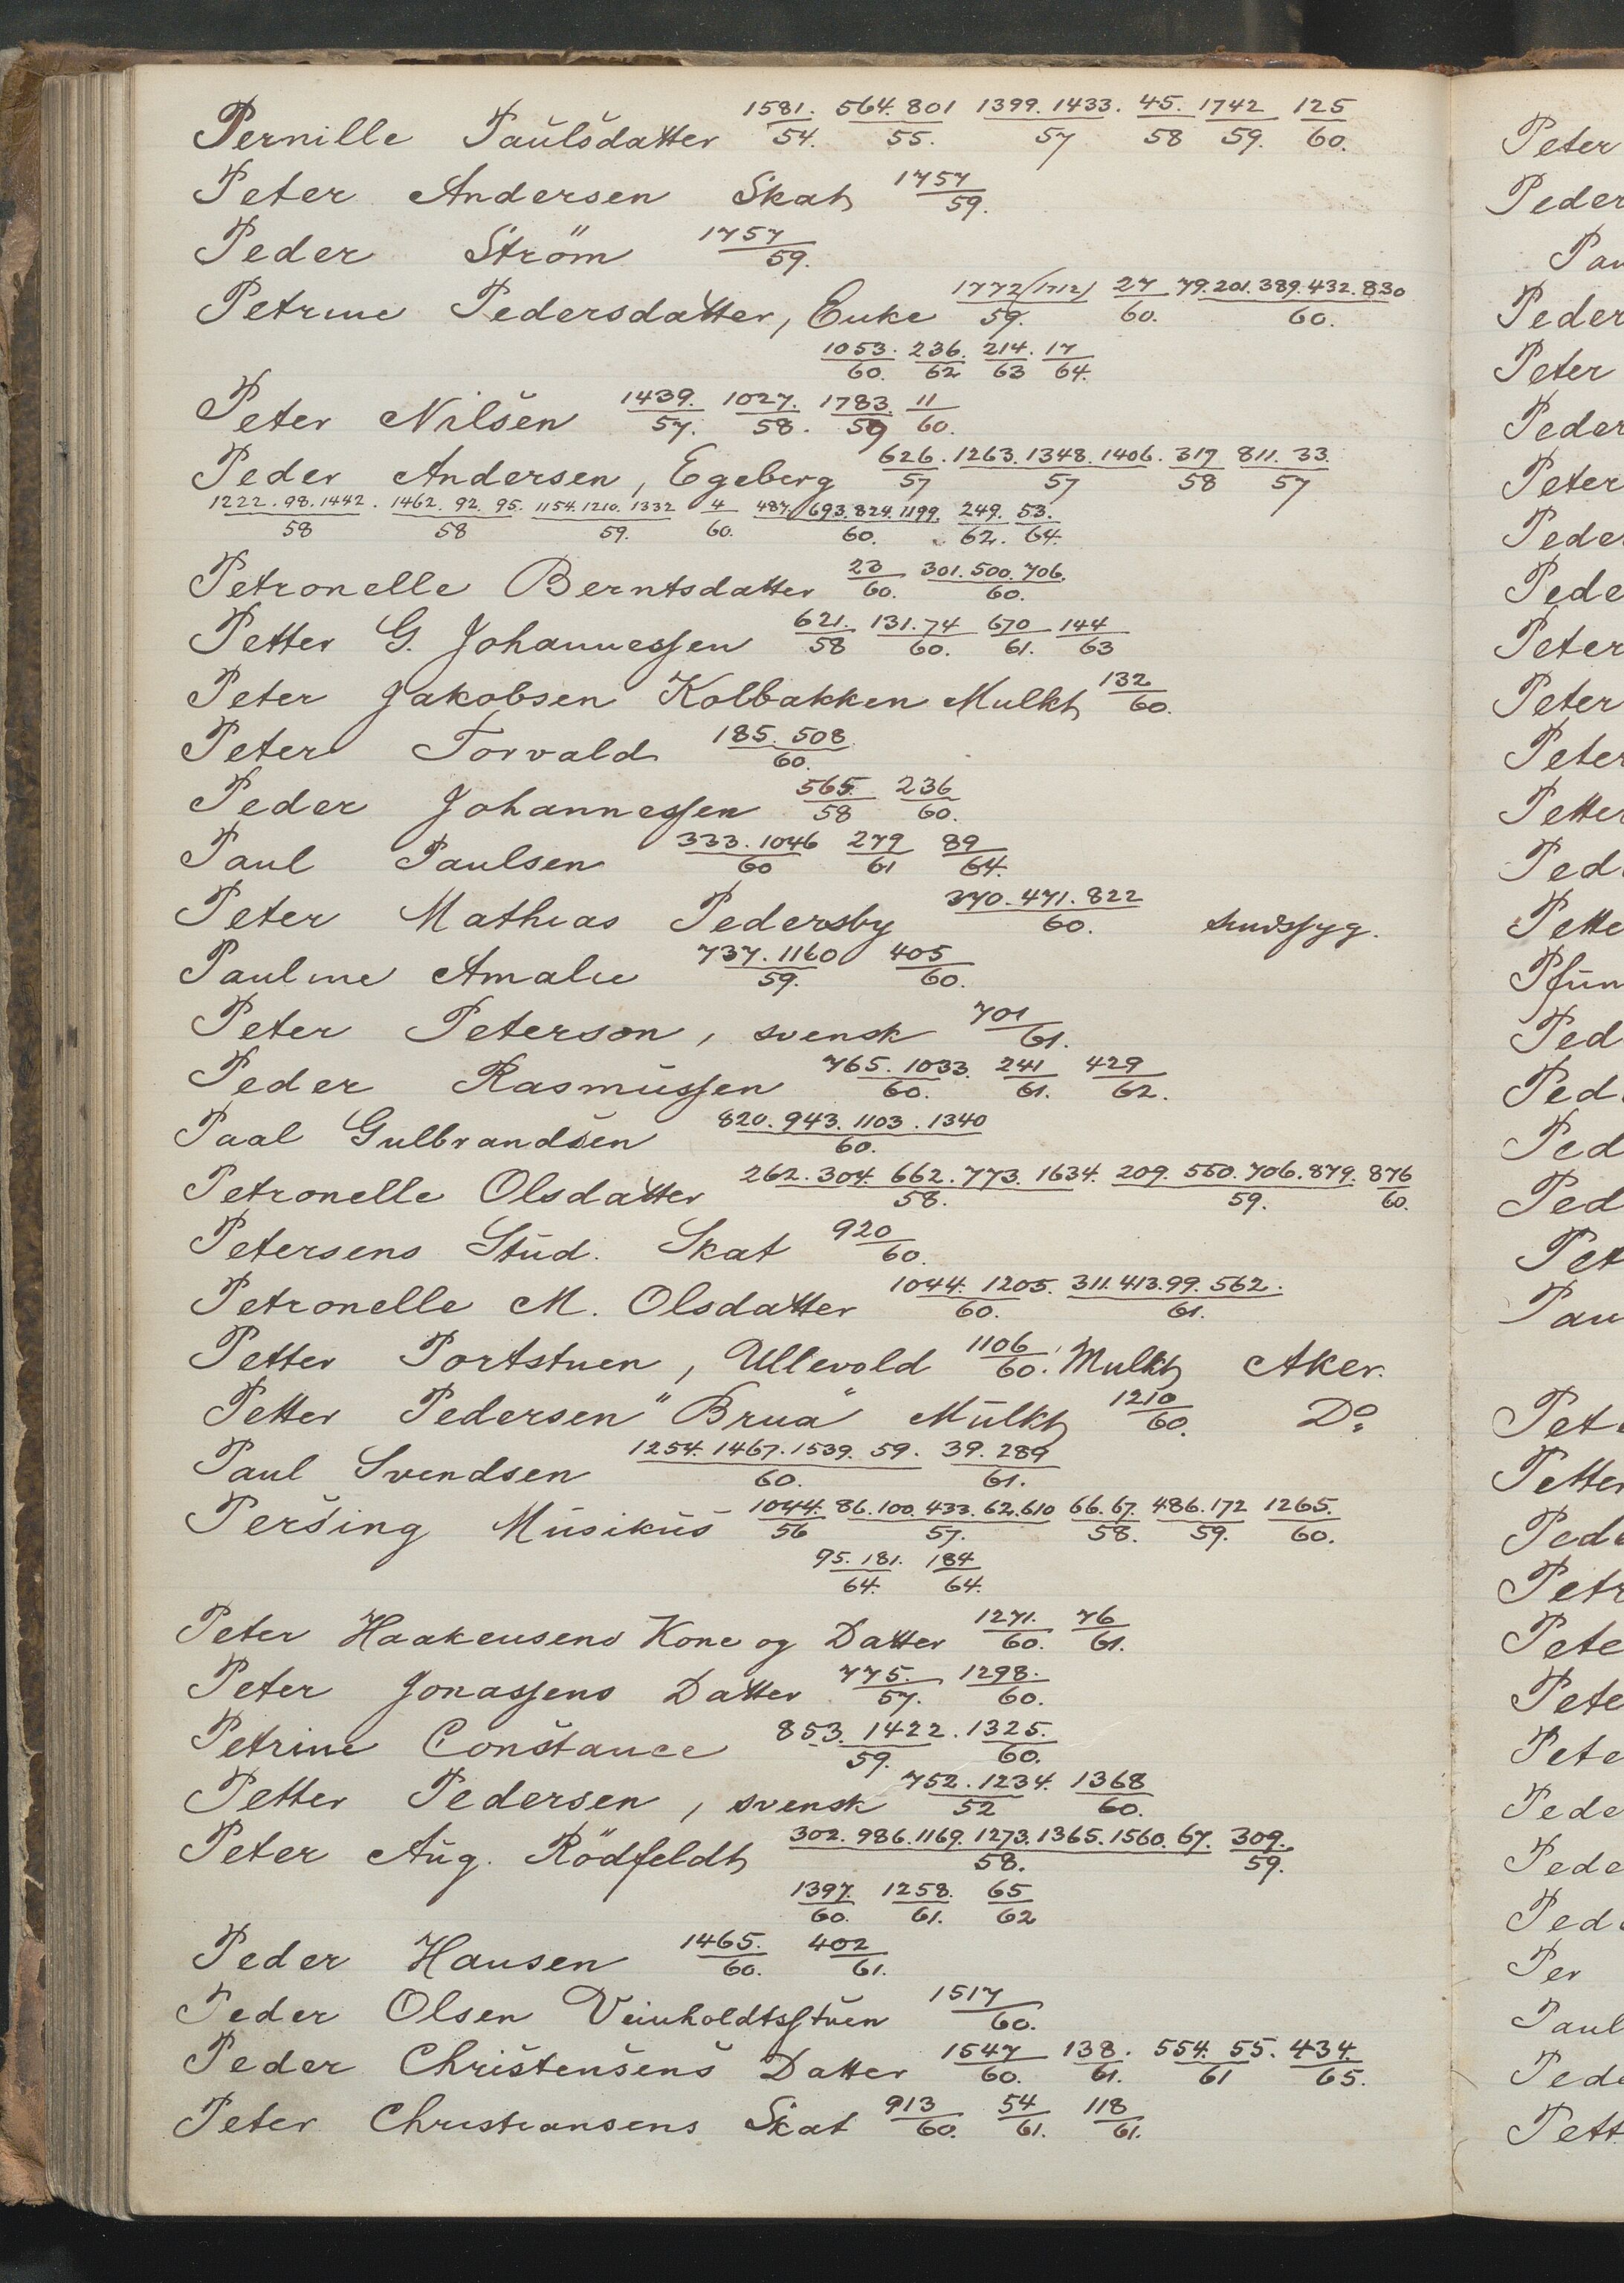 Pernille Paulsdatter 1581./54. 564.801/55. 1399.1433./57 45./58 1742/59. 125/60.
Peter Andersen Skat 1757/59.
Peder Ström 1757/59.
Petrine Pedersdatter, Enke 1772(1712)/59. 27/60. 79.201.389.432.830/60.
1053./60. 236./62 214./63 17/64.
Peter Nilsen 1439./57. 1027./58. 1783./59 11/60.
Peder Andersen, Egeberg 626./57 1263.1348.1406./57 317/58 811.33/57
1222.98.1442./58 1462.92.95./58 1154.1210.1332/59. 4/60. 487.693.824.1199./60. 249./62. 53./64.
Petronelle Berntsdatter 23/60. 301.500.706./60.
Petter G. Johannessen 621./58 131.74/60. 670/61. 144/63
Peter Jakobsen Kolbakken Mulkt 132/60.
Peter Torvald 185.508./60.
Peder Johannessen 565./58 236/60.
Paul Paulsen 333.1046/60 279/61 89/64.
Peter Mathias Pedersby 370.471.822/60. sindssyg.
Pauline Amalie 737.1160/59. 405/60.
Peter Peterson, svensk 701/61.
Peder Rasmussen 765.1033./60. 241/61. 429/62.
Paal Gulbrandsen 820.943.1103.1340/60.
Petronelle Olsdatter 262.304.662.773.1634./58. 209.550.706.879./59. 876/60.
Petersens Stud. Skat 920/60.
Petronelle M. Olsdatter 1044.1205./60. 311.413.99.562./61.
Petter Portstuen, Ullevold 1106/60. Mulkt Aker.
Petter Pedersen "Brua" Mulkt 1210/60. Do.
Paul Svendsen 1254.1467.1539.59./60. 39.289/61.
Persing Musikus 1044./56 86.100.433.62.610/57. 66.67./58. 486.172/59. 1265./60.
95.181./64. 184/64.
Peter Haakensens Kone og Datter 1271./60. 76/61.
Peter Jonassens Datter 775./57. 1298./60.
Petrine Constance 853.1422./59. 1325./60.
Petter Pedersen, svensk 752.1234./52 1368/60.
Peter Aug. Rödfeldt 302.986.1169.1273.1365.1560.67./58. 309./59.
1397./60. 1258./61. 65/62
Peder Hansen 1465./60. 402/61.
Peder Olsen Veinholdtsstuen 1517/60.
Peder Christensens Datter 1547/60. 138./61. 554.55./61 434./65.
Peter Christiansens Skat 913/60. 54/61. 118/61.
Peter
Peder
Peder
Peter
Peter
Peter
Peter
Peter